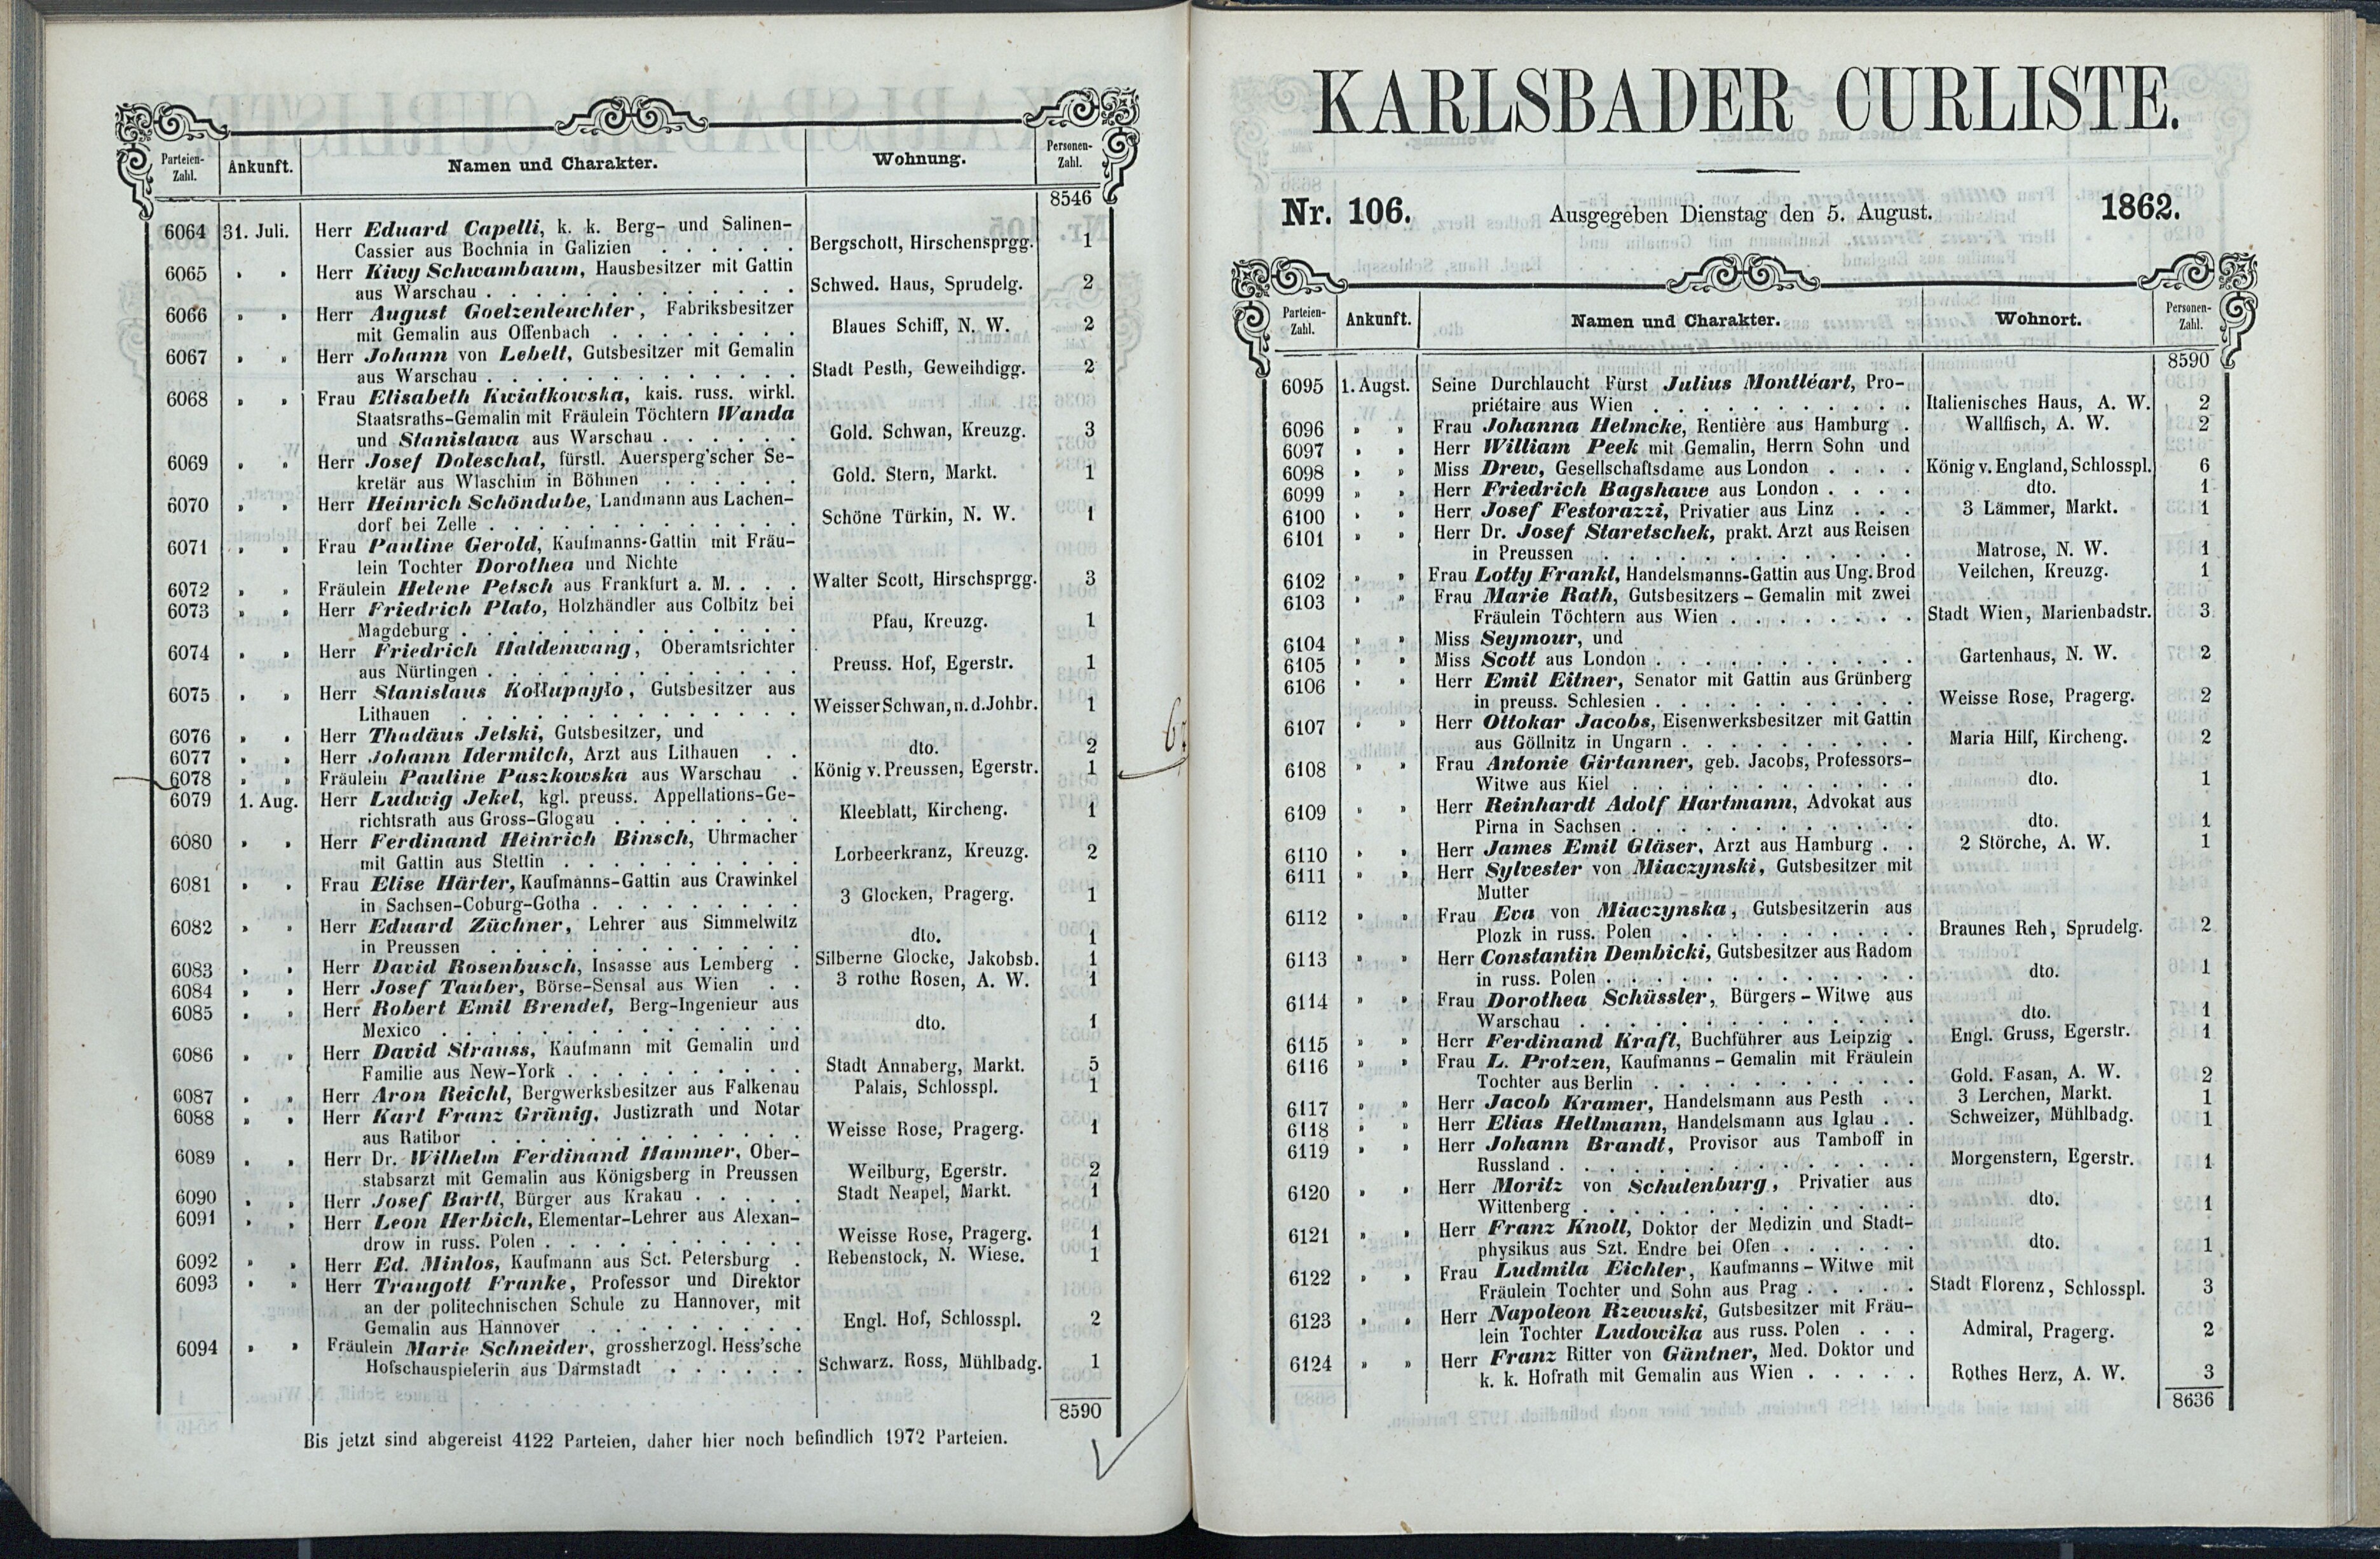 Parteien-Zahl. Ankunft. Namen und Charakter. Wohnung. Personen-Zahl.
8546
6064 31. Juli. Herr Eduard Capelli, k. k. Berg- und Salinen-
Cassier aus Bochnia in Galizien . . . . . . Bergschott, Hirschensprgg. 1
6065 „ „ Herr Kiwy Schwambaum, Hausbesitzer mit Gattin
aus Warschau . . . . . . . . . . . . Schwed. Haus, Sprudelg. 2
6066 „ „ Herr August Goelzenleuchter, Fabriksbesitzer
mit Gemalin aus Offenbach . . . . . . . Blaues Schiff, N. W. 2
6067 „ „ Herr Johann von Lebell, Gutsbesitzer mit Gemalin
aus Warschau . . . . . . . . . . . . Stadt Pesth, Geweihdigg. 2
6068 „ „ Frau Elisabeth Kwiatkowska, kais. russ. wirkl.
Staatsraths-Gemalin mit Fräulein Töchtern Wanda
und Stanislawa aus Warschau . . . . . . Gold. Schwan, Kreuzg. 3
6069 „ „ Herr Josef Doleschal, fürstl. Auersperg'scher Se-
kretär aus Wlaschim in Böhmen . . . . . . Gold. Stern, Markt. 1
6070 „ „ Herr Heinrich Schöndube, Landmann aus Lachen-
dorf bei Zelle . . . . . . . . . . . . Schöne Türkin, N. W. 1
6071 „ „ Frau Pauline Gerold, Kaufmanns-Gattin mit Fräu-
lein Tochter Dorothea und Nichte
6072 „ „ Fräulein Helene Petsch aus Frankfurt a. M. . . . Walter Scott, Hirschsprgg. 3
6073 „ „ Herr Friedrich Plato, Holzhändler aus Colbitz bei
Magdeburg . . . . . . . . . . . . . Pfau, Kreuzg. 1
6074 „ „ Herr Friedrich Haldenwang, Oberamtsrichter
aus Nürtingen . . . . . . . . . . . . Preuss. Hof, Egerstr. 1
6075 „ „ Herr Stanislaus Kołłupayło, Gutsbesitzer aus
Lithauen . . . . . . . . . . . . . Weisser Schwan, n. d. Johbr. 1
6076 „ „ Herr Thadäus Jelski, Gutsbesitzer, und
6077 „ „ Herr Johann Idermilch, Arzt aus Lithauen . . dto. 2
6078 „ „ Fräulein Pauline Paszkowska aus Warschau . König v. Preussen, Egerstr. 1
6079 1. Aug. Herr Ludwig Jekel, kgl. preuss. Appellations-Ge-
richtsrath aus Gross-Glogau . . . . . . . Kleeblatt, Kircheng. 1
6080 „ „ Herr Ferdinand Heinrich Binsch, Uhrmacher
mit Gattin aus Stettin . . . . . . . . . Lorbeerkranz, Kreuzg. 2
6081 „ „ Frau Elise Härter, Kaufmanns-Gattin aus Crawinkel
in Sachsen-Coburg-Gotha . . . . . . . . 3 Glocken, Pragerg. 1
6082 „ „ Herr Eduard Züchner, Lehrer aus Simmelwitz
in Preussen . . . . . . . . . . . . dto. 1
6083 „ „ Herr David Rosenbusch, Insasse aus Lemberg . Silberne Glocke, Jakobsb. 1
6084 „ „ Herr Josef Tauber, Börse-Sensal aus Wien . . 3 rothe Rosen, A. W. 1
6085 „ „ Herr Robert Emil Brendel, Berg-Ingenieur aus
Mexico . . . . . . . . . . . . . . dto. 1
6086 „ „ Herr David Strauss, Kaufmann mit Gemalin und
Familie aus New-York . . . . . . . . . Stadt Annaberg, Markt. 5
6087 „ „ Herr Aron Reichl, Bergwerksbesitzer aus Falkenau Palais, Schlosspl. 1
6088 „ „ Herr Karl Franz Grünig, Justizrath und Notar
aus Ratibor . . . . . . . . . . . . Weisse Rose, Pragerg. 1
6089 „ „ Herr Dr. Wilhelm Ferdinand Hammer, Ober-
stabsarzt mit Gemalin aus Königsberg in Preussen Weilburg, Egerstr. 2
6090 „ „ Herr Josef Bartl, Bürger aus Krakau . . . . . Stadt Neapel, Markt. 1
6091 „ „ Herr Leon Herbich, Elementar-Lehrer aus Alexan-
drow in russ. Polen . . . . . . . . . . Weisse Rose, Pragerg. 1
6092 „ „ Herr Ed. Minlos, Kaufmann aus Sct. Petersburg . Rebenstock, N. Wiese. 1
6093 „ „ Herr Traugott Franke, Professor und Direktor
an der politechnischen Schule zu Hannover, mit
Gemalin aus Hannover . . . . . . . . . Engl. Hof, Schlosspl. 2
6094 „ „ Fräulein Marie Schneider, grossherzogl. Hess'sche
Hofschauspielerin aus Darmstadt . . . . . . Schwarz. Ross, Mühlbadg. 1
8590
Bis jetzt sind abgereist 4122 Parteien, daher hier noch befindlich 1972 Parteien.
KARLSBADER CURLISTE.
Nr. 106. Ausgegeben Dienstag den 5. August. 1862.
Parteien-Zahl. Ankunft. Namen und Charakter. Wohnort. Personen-Zahl.
8590
6095 1. Augst. Seine Durchlaucht Fürst Julius Montléart, Pro-
priétaire aus Wien . . . . . . . . . . . Italienisches Haus, A. W. 2
6096 „ „ Frau Johanna Helmcke, Rentière aus Hamburg . Wallfisch, A. W. 2
6097 „ „ Herr William Peek mit Gemalin, Herrn Sohn und
6098 „ „ Miss Drew, Gesellschaftsdame aus London . . . . König v. England, Schlosspl. 6
6099 „ „ Herr Friedrich Bagshawe aus London . . . . dto. 1
6100 „ „ Herr Josef Festorazzi, Privatier aus Linz . . . 3 Lämmer, Markt. 1
6101 „ „ Herr Dr. Josef Staretschek, prakt. Arzt aus Reisen
in Preussen . . . . . . . . . . . . . Matrose, N. W. 1
6102 „ „ Frau Lotty Frankl, Handelsmanns-Gattin aus Ung. Brod Veilchen, Kreuzg. 1
6103 „ „ Frau Marie Rath, Gutsbesitzers-Gemalin mit zwei
Fräulein Töchtern aus Wien . . . . . . . . Stadt Wien, Marienbadstr. 3
6104 „ „ Miss Seymour, und
6105 „ „ Miss Scott aus London . . . . . . . . . . Gartenhaus, N. W. 2
6106 „ „ Herr Emil Eitner, Senator mit Gattin aus Grünberg
in preuss. Schlesien . . . . . . . . . . Weisse Rose, Pragerg. 2
6107 „ „ Herr Ottokar Jacobs, Eisenwerksbesitzer mit Gattin
aus Göllnitz in Ungarn . . . . . . . . . Maria Hilf, Kircheng. 2
6108 „ „ Frau Antonie Girtanner, geb. Jacobs, Professors-
Witwe aus Kiel . . . . . . . . . . . dto. 1
6109 „ „ Herr Reinhardt Adolf Hartmann, Advokat aus
Pirna in Sachsen . . . . . . . . . . . dto. 1
6110 „ „ Herr James Emil Gläser, Arzt aus Hamburg . . 2 Störche, A. W. 1
6111 „ „ Herr Sylvester von Miaczynski, Gutsbesitzer mit
Mutter
6112 „ „ Frau Eva von Miaczynska, Gutsbesitzerin aus
Plozk in russ. Polen . . . . . . . . . Braunes Reh, Sprudelg. 2
6113 „ „ Herr Constantin Dembicki, Gutsbesitzer aus Radom
in russ. Polen . . . . . . . . . . . . dto. 1
6114 „ „ Frau Dorothea Schüssler, Bürgers-Witwe aus
Warschau . . . . . . . . . . . . . dto. 1
6115 „ „ Herr Ferdinand Kraft, Buchführer aus Leipzig . Engl. Gruss, Egerstr. 1
6116 „ „ Frau L. Protzen, Kaufmanns-Gemalin mit Fräulein
Tochter aus Berlin . . . . . . . . . . Gold. Fasan, A. W. 2
6117 „ „ Herr Jacob Kramer, Handelsmann aus Pesth . . 3 Lerchen, Markt. 1
6118 „ „ Herr Elias Hellmann, Handelsmann aus Iglau . . Schweizer, Mühlbadg. 1
6119 „ „ Herr Johann Brandt, Provisor aus Tamboff in
Russland . . . . . . . . . . . . . . Morgenstern, Egerstr. 1
6120 „ „ Herr Moritz von Schulenburg, Privatier aus
Wittenberg . . . . . . . . . . . . . dto. 1
6121 „ „ Herr Franz Knoll, Doktor der Medizin und Stadt-
physikus aus Szt. Endre bei Ofen . . . . . . dto. 1
6122 „ „ Frau Ludmila Eichler, Kaufmanns-Witwe mit
Fräulein Tochter und Sohn aus Prag . . . . . Stadt Florenz, Schlosspl. 3
6123 „ „ Herr Napoleon Rzewuski, Gutsbesitzer mit Fräu-
lein Tochter Ludowika aus russ. Polen . . . Admiral, Pragerg. 2
6124 „ „ Herr Franz Ritter von Güntner, Med. Doktor und
k. k. Hofrath mit Gemalin aus Wien . . . . . Rothes Herz, A. W. 3
8636